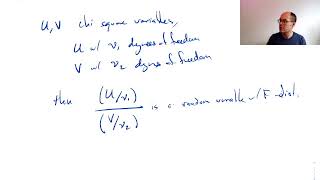 U, V chi square variables,
U w/ ν₁ degrees of freedom
V w/ ν₂ degrees of freedom
then (U/ν₁) / (V/ν₂) is a random variable w/ F-dist.